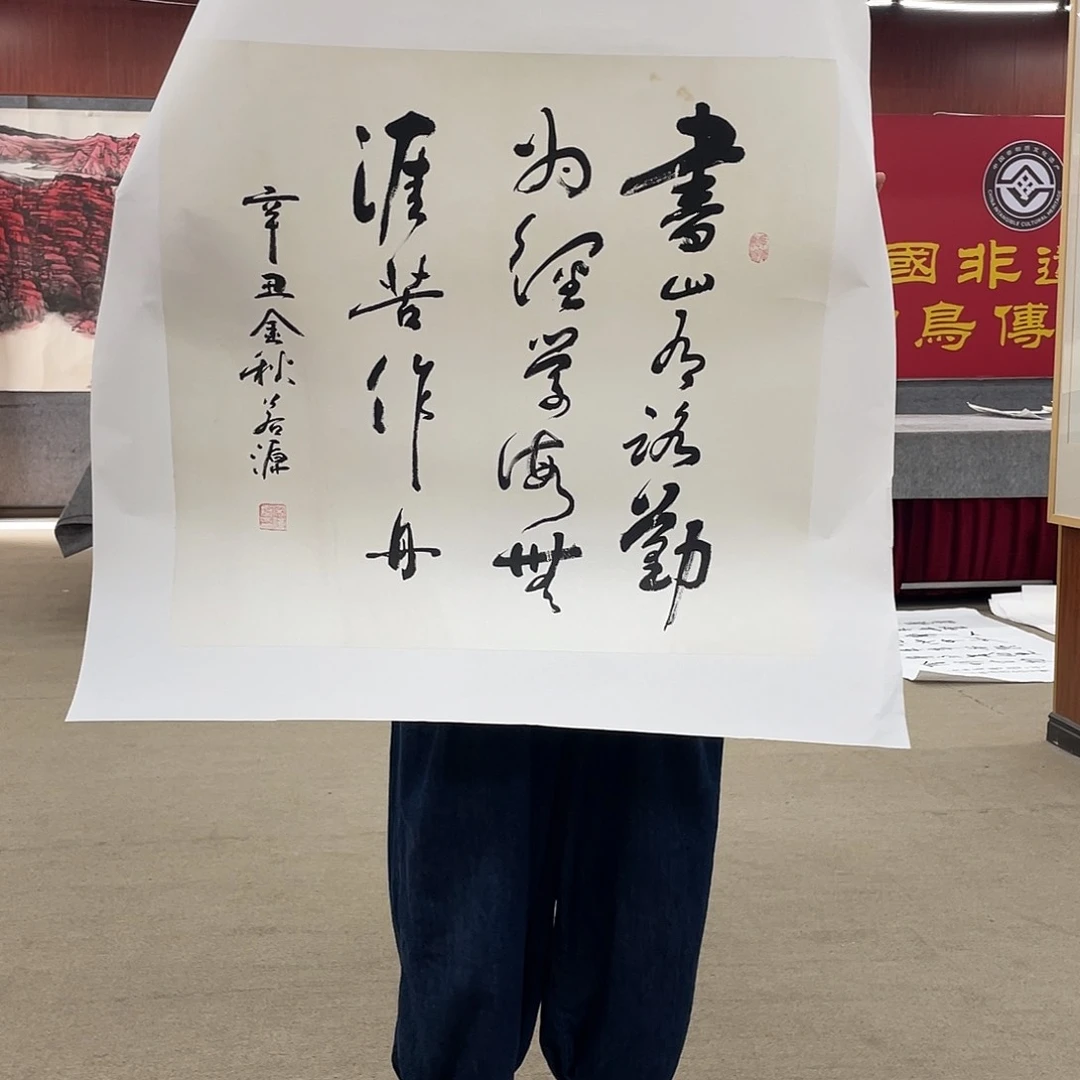 書山有路勤
为径学海無
涯苦作舟
辛丑金秋若源
國非遺
鳥傳
CHINA INTANGIBLE CULTURAL HERITAGE